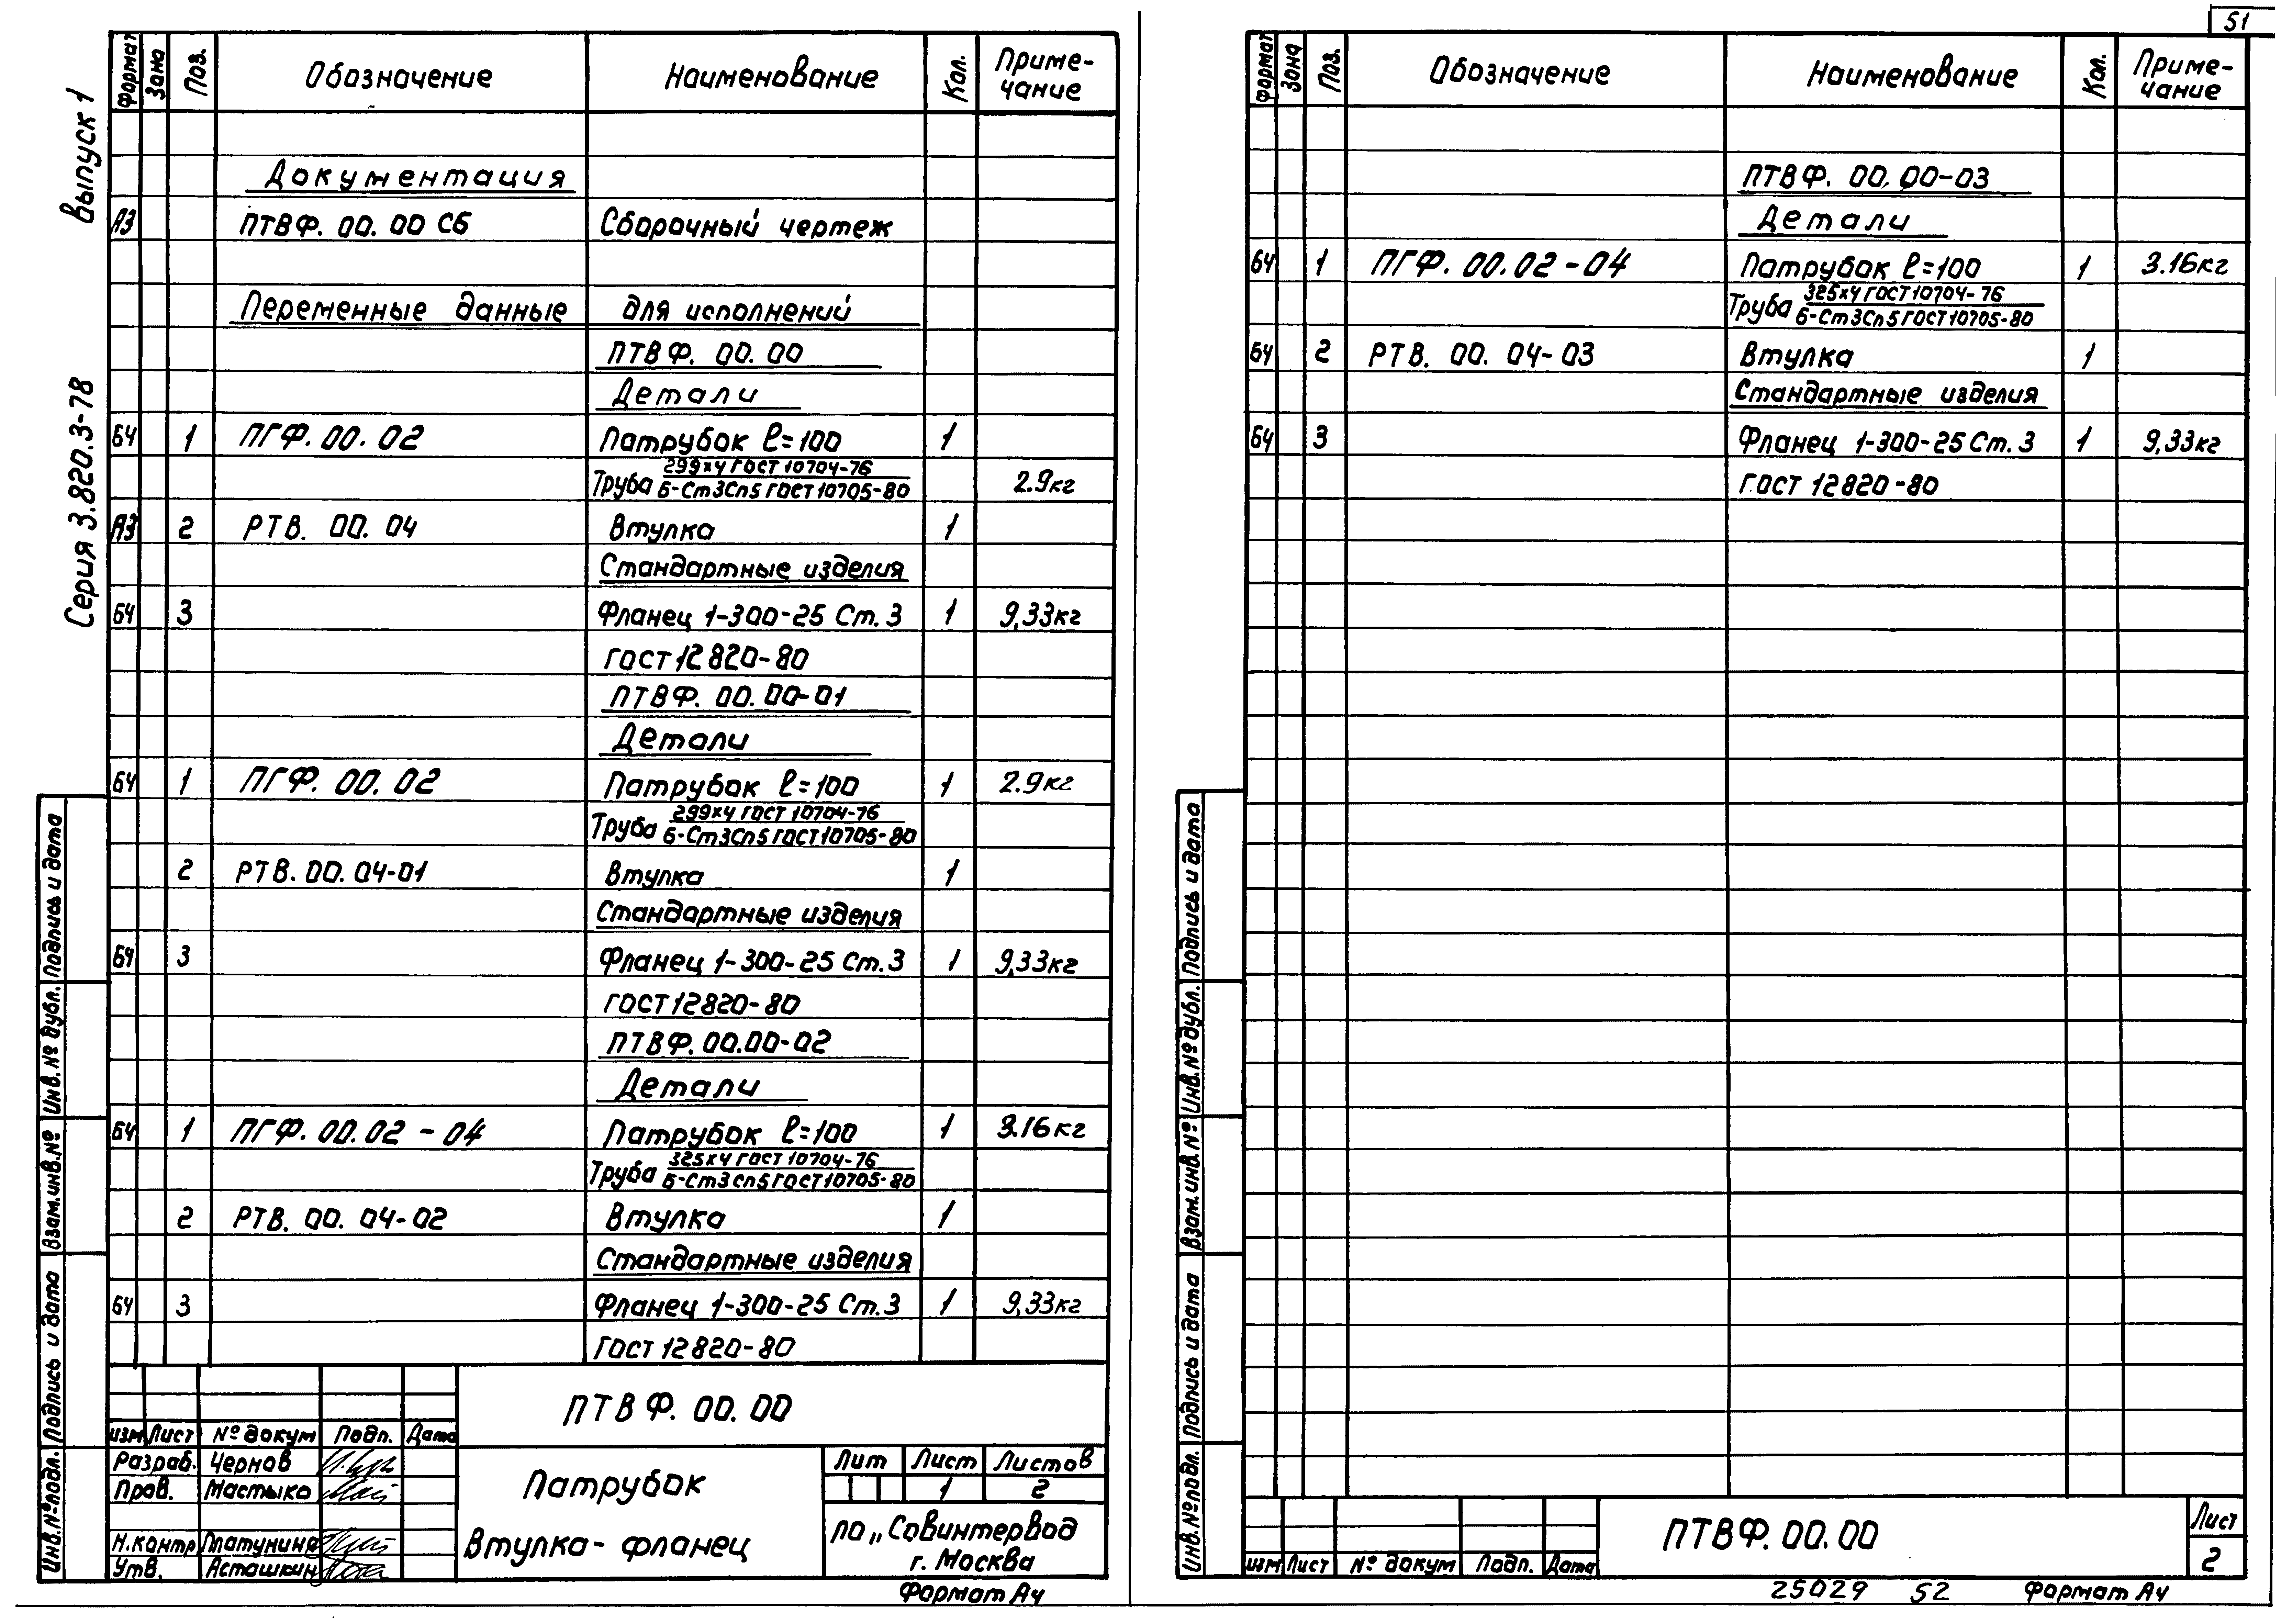 51
Выпуск 1
Серия 3.820.3-78
Формат Зона Поз. Обозначение Наименование Кол. Приме-
чание
Документация
А3 ПТВФ. 00. 00 СБ Сборочный чертеж
Переменные данные для исполнений
ПТВФ. 00. 00
Детали
БЧ 1 ПГФ. 00. 02 Патрубок ℓ=100 1
Труба 299×4 ГОСТ 10704-76
Б-Ст3Сп5 ГОСТ 10705-80 2.9кг
А3 2 РТВ. 00. 04 Втулка 1
Стандартные изделия
БЧ 3 Фланец 1-300-25 Ст. 3 1 9,33кг
ГОСТ 12820-80
ПТВФ. 00. 00-01
Детали
БЧ 1 ПГФ. 00. 02 Патрубок ℓ=100 1 2.9кг
Труба 299×4 ГОСТ 10704-76
Б-Ст3Сп5 ГОСТ 10705-80
2 РТВ. 00. 04-01 Втулка 1
Стандартные изделия
БЧ 3 Фланец 1-300-25 Ст. 3 1 9,33кг
ГОСТ 12820-80
ПТВФ. 00.00-02
Детали
БЧ 1 ПГФ. 00. 02 - 04 Патрубок ℓ=100 1 3.16кг
Труба 325×4 ГОСТ 10704-76
Б-Ст3сп5 ГОСТ 10705-80
2 РТВ. 00. 04-02 Втулка 1
Стандартные изделия
БЧ 3 Фланец 1-300-25 Ст. 3 1 9,33кг
ГОСТ 12820-80
Подпись и дата
Инв. № дубл.
Взам. инв. №
Подпись и дата
Инв. № подл.
ПТВФ. 00. 00
Изм Лист № докум Подп. Дата
Разраб. Чернов
Пров. Мастыко
Н.контр Платунина
Утв. Асташкин
Патрубок
Втулка - фланец
Лит Лист Листов
1 2
ПО „Совинтервод
г. Москва
Формат А4
Формат Зона Поз. Обозначение Наименование Кол. Приме-
чание
ПТВФ. 00. 00-03
Детали
БЧ 1 ПГФ. 00. 02 - 04 Патрубок ℓ=100 1 3.16кг
Труба 325×4 ГОСТ 10704-76
Б-Ст3Сп5 ГОСТ 10705-80
БЧ 2 РТВ. 00. 04-03 Втулка 1
Стандартные изделия
БЧ 3 Фланец 1-300-25 Ст. 3 1 9,33кг
ГОСТ 12820-80
Подпись и дата
Инв. № дубл.
Взам. инв. №
Подпись и дата
Инв. № подл.
Изм Лист № докум Подп. Дата
ПТВФ. 00. 00
Лист
2
25029 52 Формат А4